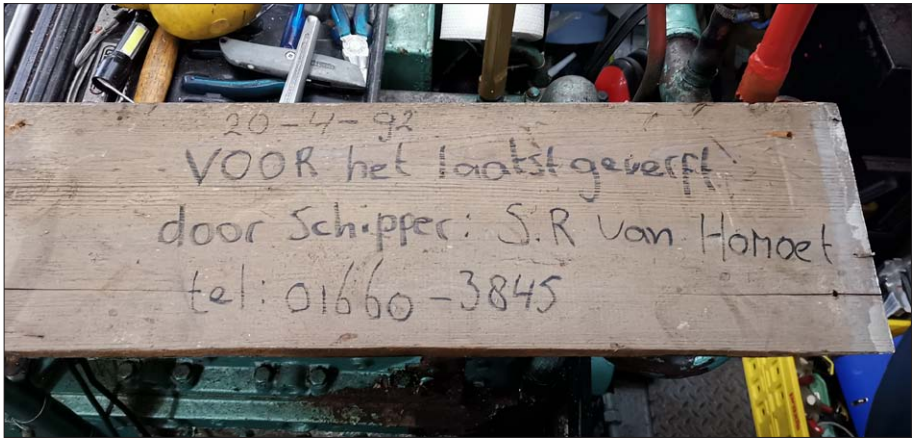 20-4-92
VOOR het laatst geverft!
door Schipper: S.R van Homoet
tel: 01660-3845